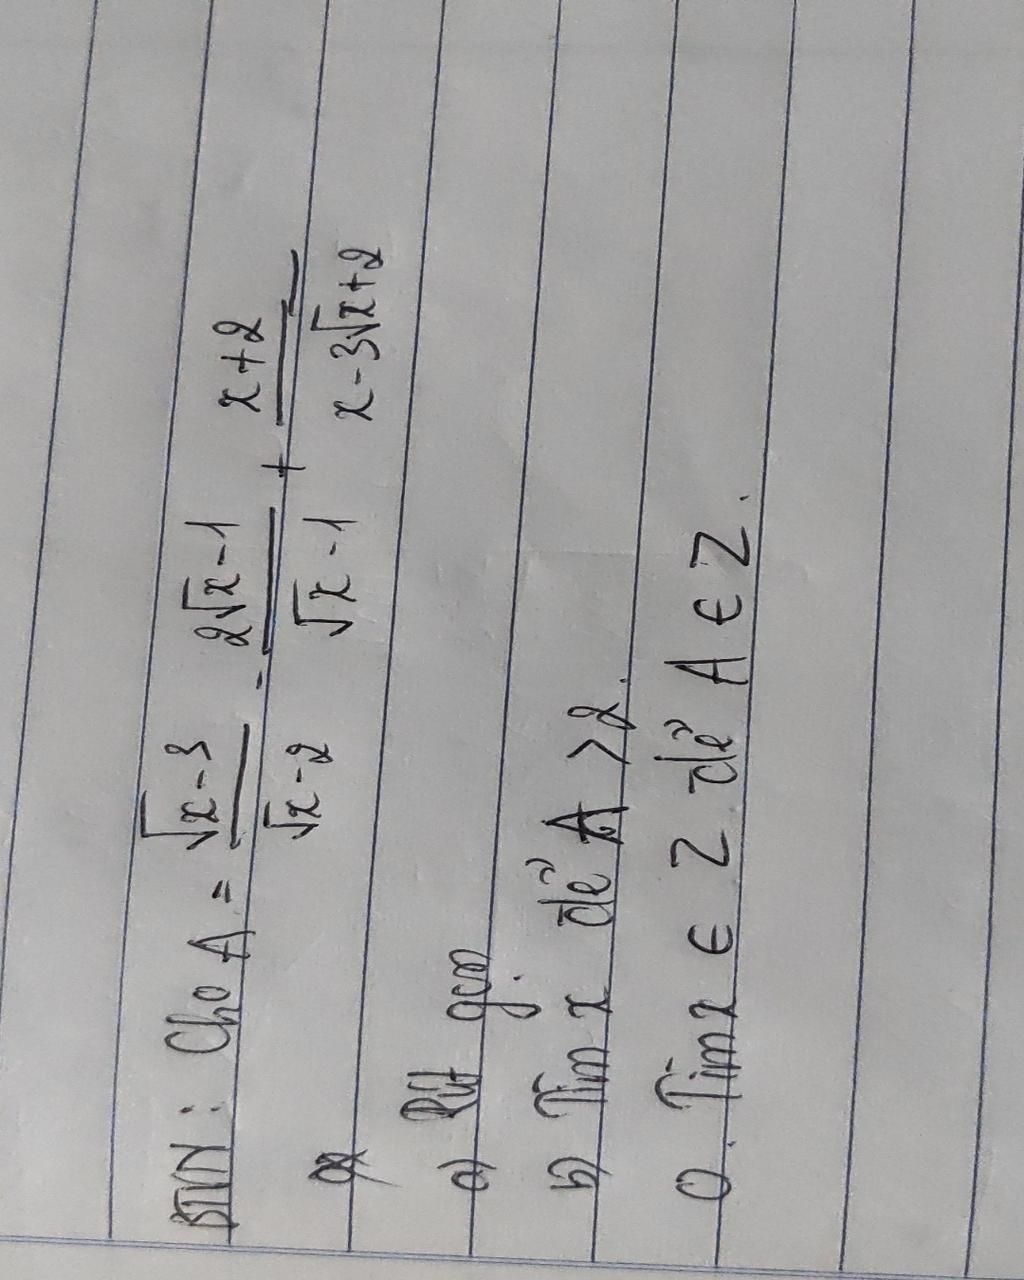 BTVN : Cho A = \frac{\sqrt{x}-3}{\sqrt{x}-2} - \frac{2\sqrt{x}-1}{\sqrt{x}-1} + \frac{x+2}{x-3\sqrt{x}+2}
a) Rút gọn
b) Tìm x để A > 2.
c. Tìm x ∈ Z để A ∈ Z.